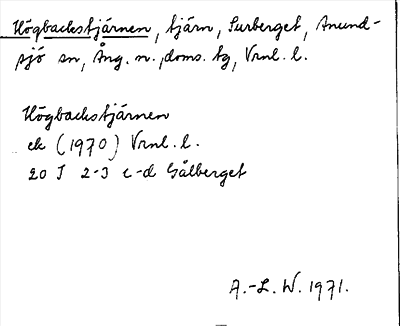 Högbackstjärnen, tjärn, Surberget, Anund-
sjö sn, Ång. n., doms. tg, Vrnl. l.
Högbackstjärnen
ek (1970) Vrnl. l.
20 J 2-3 c-d Gålberget
A.-L. W. 1971.